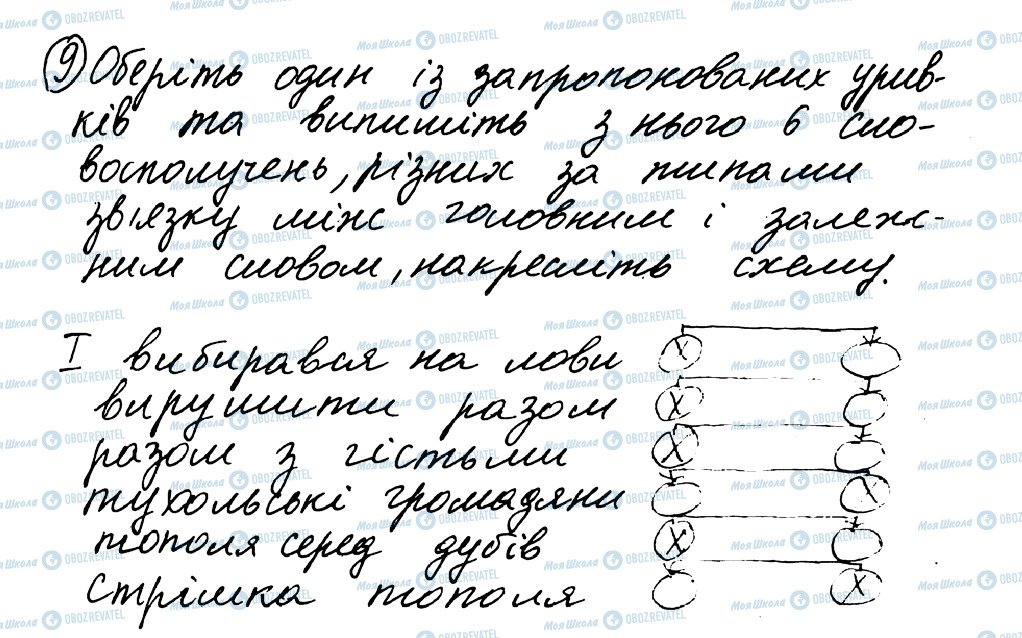 9) Оберіть один із запропонованих урив-
ків та випишіть з нього 6 сло-
восполучень, різних за типами
зв'язку між головним і залеж-
ним словом, накресліть схему.
I вибирався на лови
вирушити разом
разом з гістьми
тухольські громадяни
тополя серед дубів
стрімка тополя